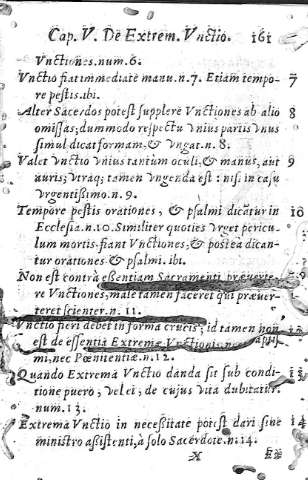 Cap. V. De Extrem. Vnctio. 161
Vnctiones.num.6.
Vnctio fiat immediatè manu.n.7. Etiam tempo- 7
re pestis.ibi.
Alter Sacerdos potest supplere Vnctiones ab alio 8
omissas; dummodo respectu Vnius partis Vnus
simul dicat formam, & Vngat.n.8.
Valet Vnctio Vnius tantum oculi, & manus, aut 9
auris; Vtraq; tamen Vngenda est: nisi in casu
Vrgentissimo.n.9.
Tempore pestis orationes, & psalmi dicãtur in 10
Ecclesia.n.10. Similiter quoties Vrget pericu-
lum mortis. fiant Vnctiones, & postea dican-
tur orationes & psalmi. ibi.
Non est contrà essentiam Sacramenti præuerte-
re Vnctiones, male tamen faceret qui præuer-
teret scienter.n.11.
Vnctio fieri debet in forma crucis; id tamen non
est de essentia Extremæ Vnctionis,
mi, nec Pœnitentiæ.n.12.
Quando Extrema Vnctio danda sit sub condi-
tione puero, vel ei, de cujus vita dubitatur.
num.13.
Extrema Vnctio in necessitate potest dari sine 14
ministro assistenti, à solo Sacerdote.n.14.
X Ex